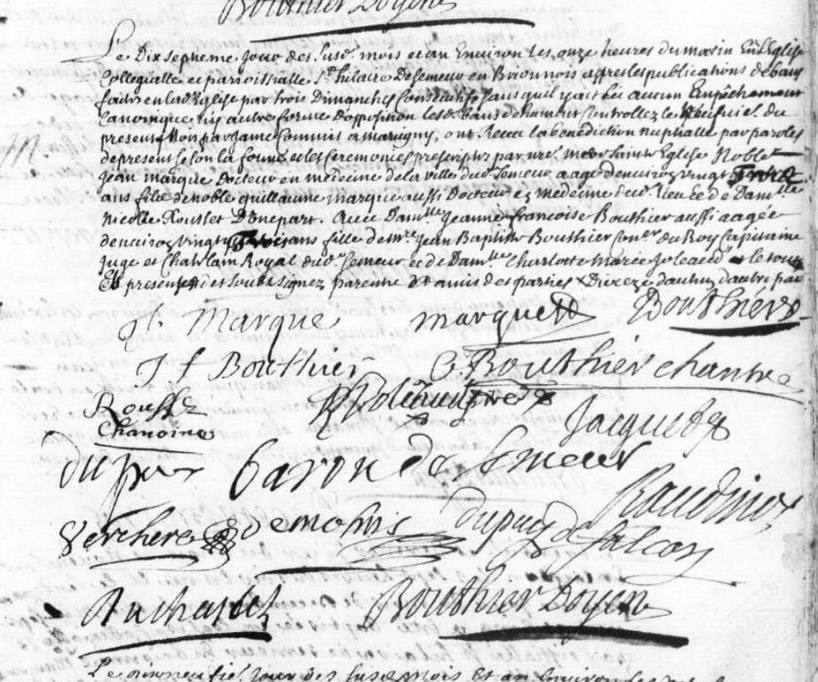 Bouthier Doyen
Le Dix septieme jour des susd. mois et an Environ les onze heures du matin En Leglise
collegialle et paroissialle St. hilaire De semeur en Brionnois apres les publications de bans
faites en lad. Eglise par trois Dimanches Consecutifs sans quil y ait Eu aucun Empechement
Canonique ny autre forme d'opposition les d. bans deuement Controllez le du
present Mois par Jame Commis a marigny, ont Receu la benediction nuptialle par paroles
de present selon la forme et les ceremonies prescriptes par nre. mere sainte Eglise Noble
jean marque Docteur en medecine de la ville dud. semeur aagé d'environ vingt
ans fils de noble guillaume marque aussi Docteur es medecine dud. lieu et de Damlle
nicolle Rousset Avec Damlle jeanne francoise Bouthier aussi aagée
denviron vingt trois ans fille de mre jean Baptiste Bouthier Coner. du Roy Capitaine
juge et Chatelain Royal dud. semeur et de Damlle Charlotte Marie le tout
En presence des soubsignez parents et amis des parties d'autre part
M
jl. Marque marque Bouthier
J f Bouthier C Bouthier chantre
Rousset
Chanoine
Jacquet
dupuis Caron De Semeur
Verchere Demolins dupuy de falcon
Baudinot
Bouthier Doyen
Le jour des susd. mois et an Environ les